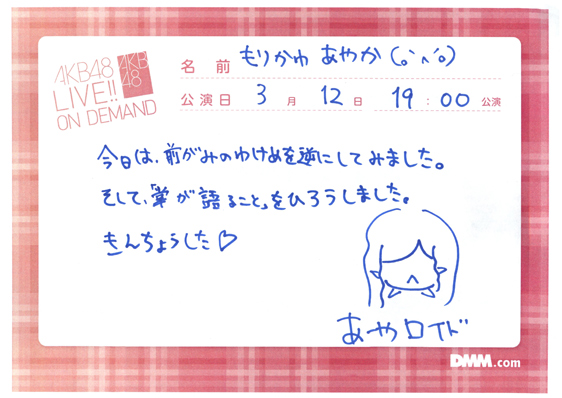 AKB48
LIVE!!
ON DEMAND
AKB
48
名 前 もりかわ あやか (。`ハ´。)
公演日 3月 12日 19:00 公演
今日は、前がみのわけめを逆にしてみました。
そして、「掌が語ること」をひろうしました。
きんちょうした♡
あやロイド
DMM.com